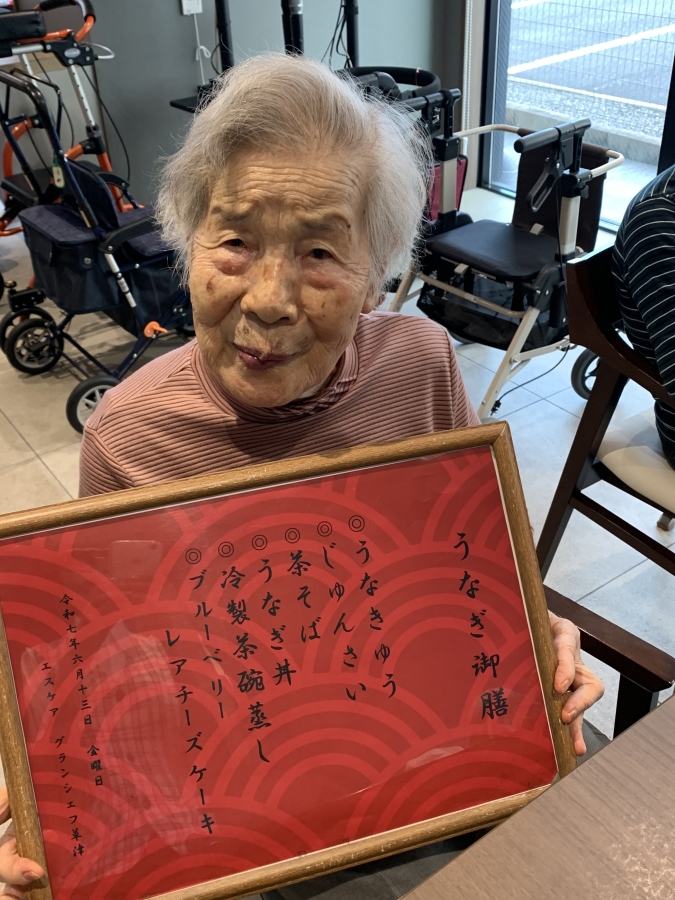 うなぎ御膳
◎うなきゅう
◎じゅんさい
◎茶そば
◎うなぎ丼
◎冷製茶碗蒸し
◎ブルーベリー
レアチーズケーキ
令和七年六月十三日 金曜日
エスケア グランシエフ草津